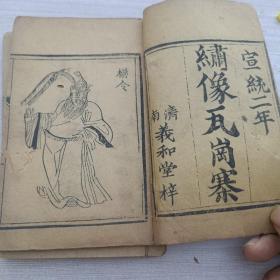 宣統二年
繡像瓦崗寨
濟南義和堂梓
楊令